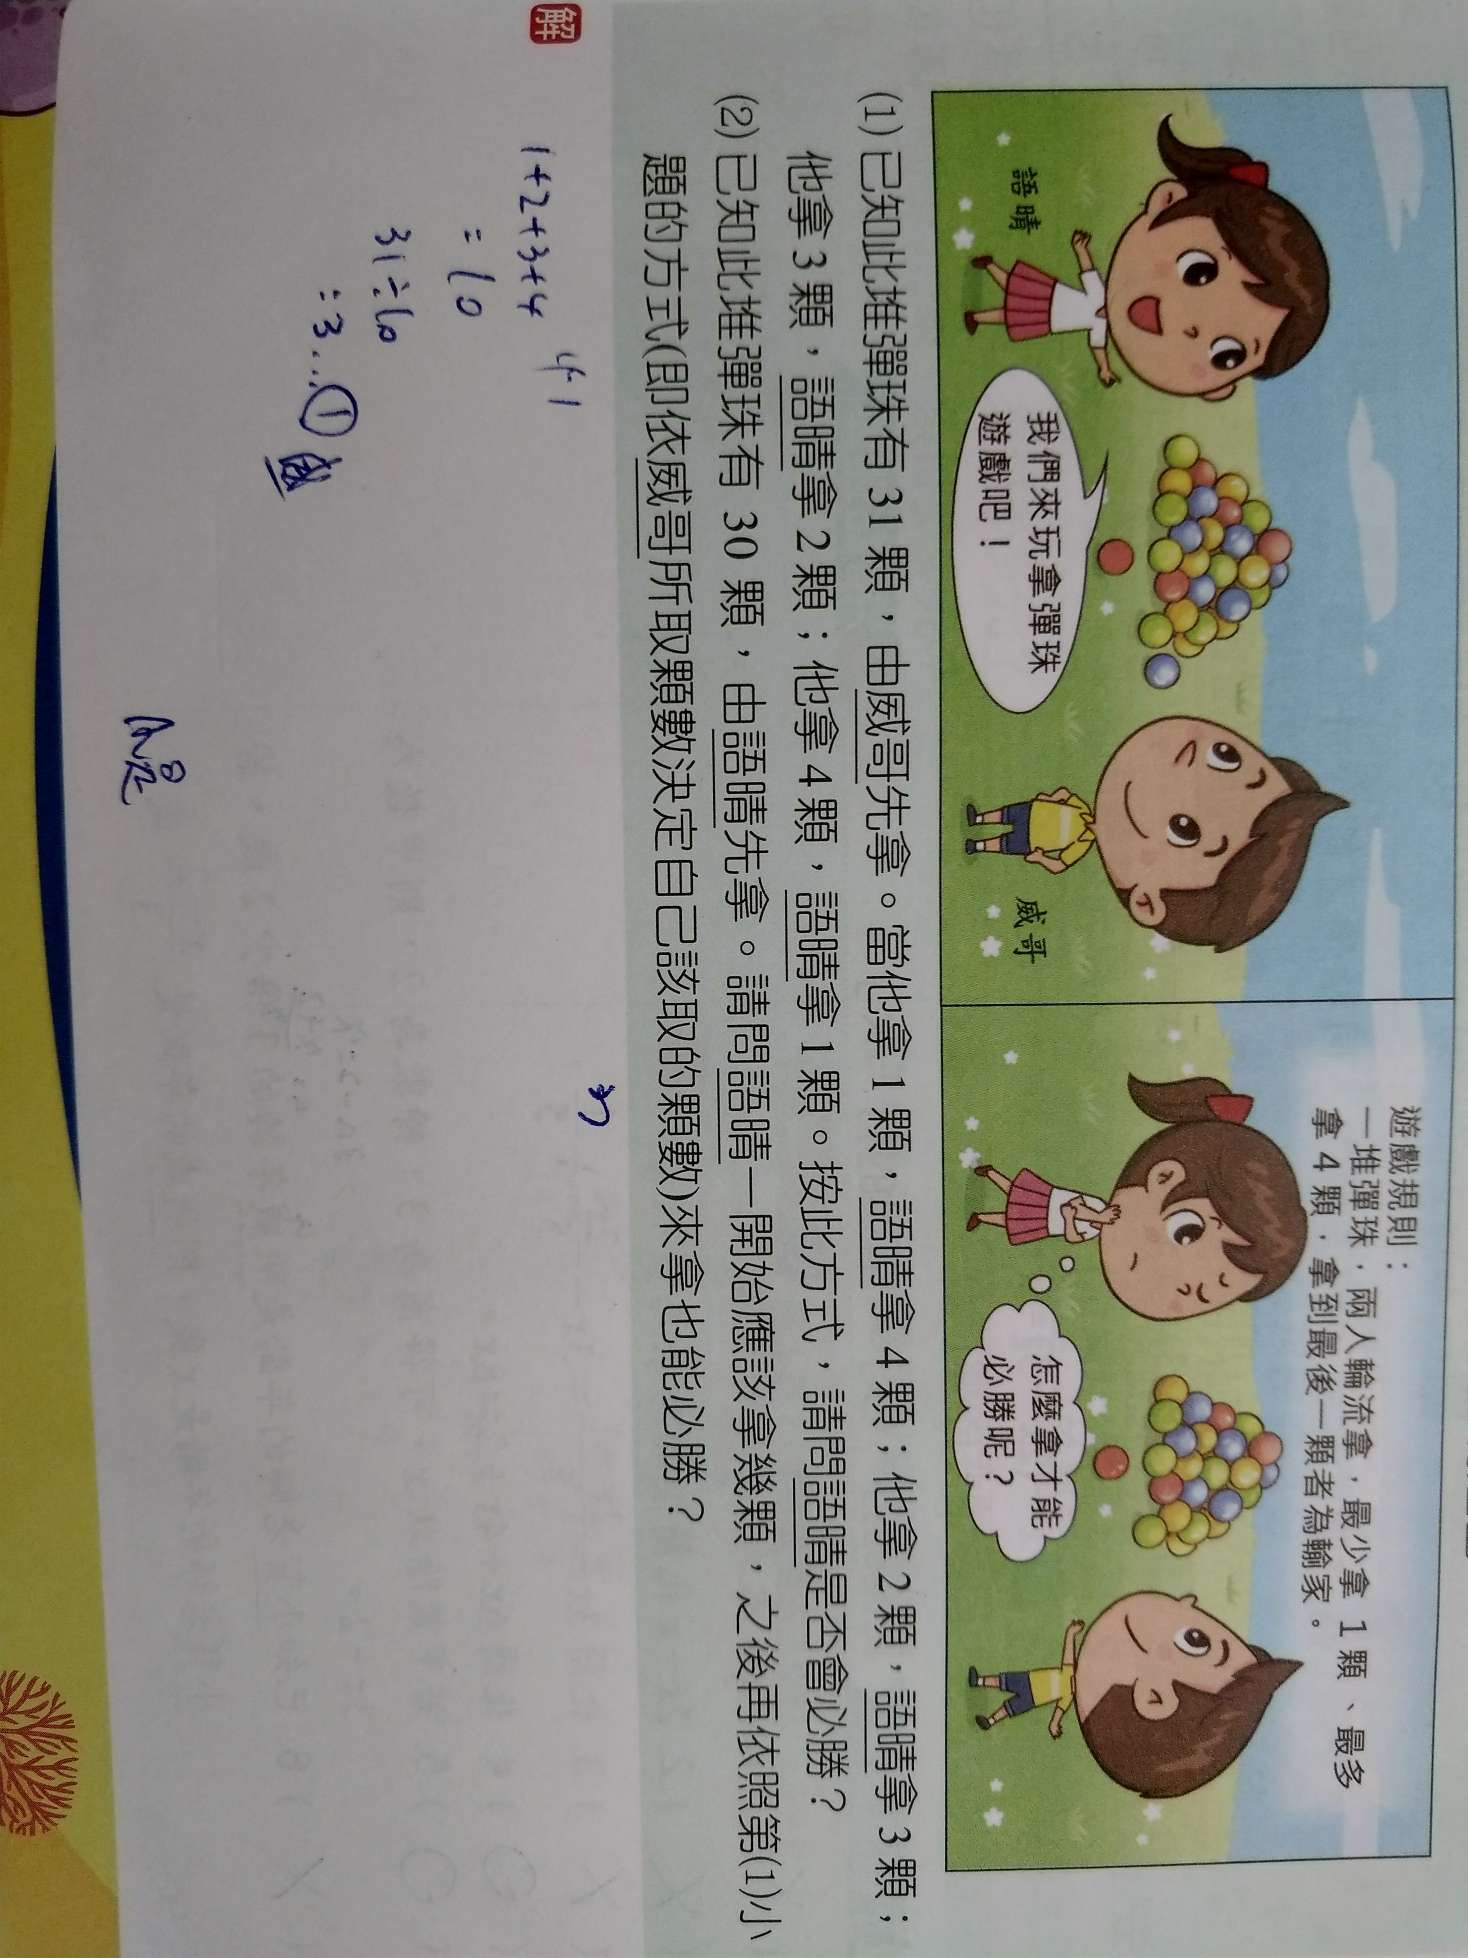 遊戲規則：
一堆彈珠，兩人輪流拿，最少拿 1 顆、最多
拿 4 顆，拿到最後一顆者為輸家。
語晴
我們來玩拿彈珠
遊戲吧！
威哥
怎麼拿才能
必勝呢？
(1) 已知此堆彈珠有 31 顆，由威哥先拿。當他拿 1 顆，語晴拿 4 顆；他拿 2 顆，語晴拿 3 顆；
他拿 3 顆，語晴拿 2 顆；他拿 4 顆，語晴拿 1 顆。按此方式，請問語晴是否會必勝？
(2) 已知此堆彈珠有 30 顆，由語晴先拿。請問語晴一開始應該拿幾顆，之後再依照第(1)小
題的方式(即依威哥所取顆數決定自己該取的顆數)來拿也能必勝？
解
1+2+3+4
=10
31÷10
=3…1
威
4-1
A:是